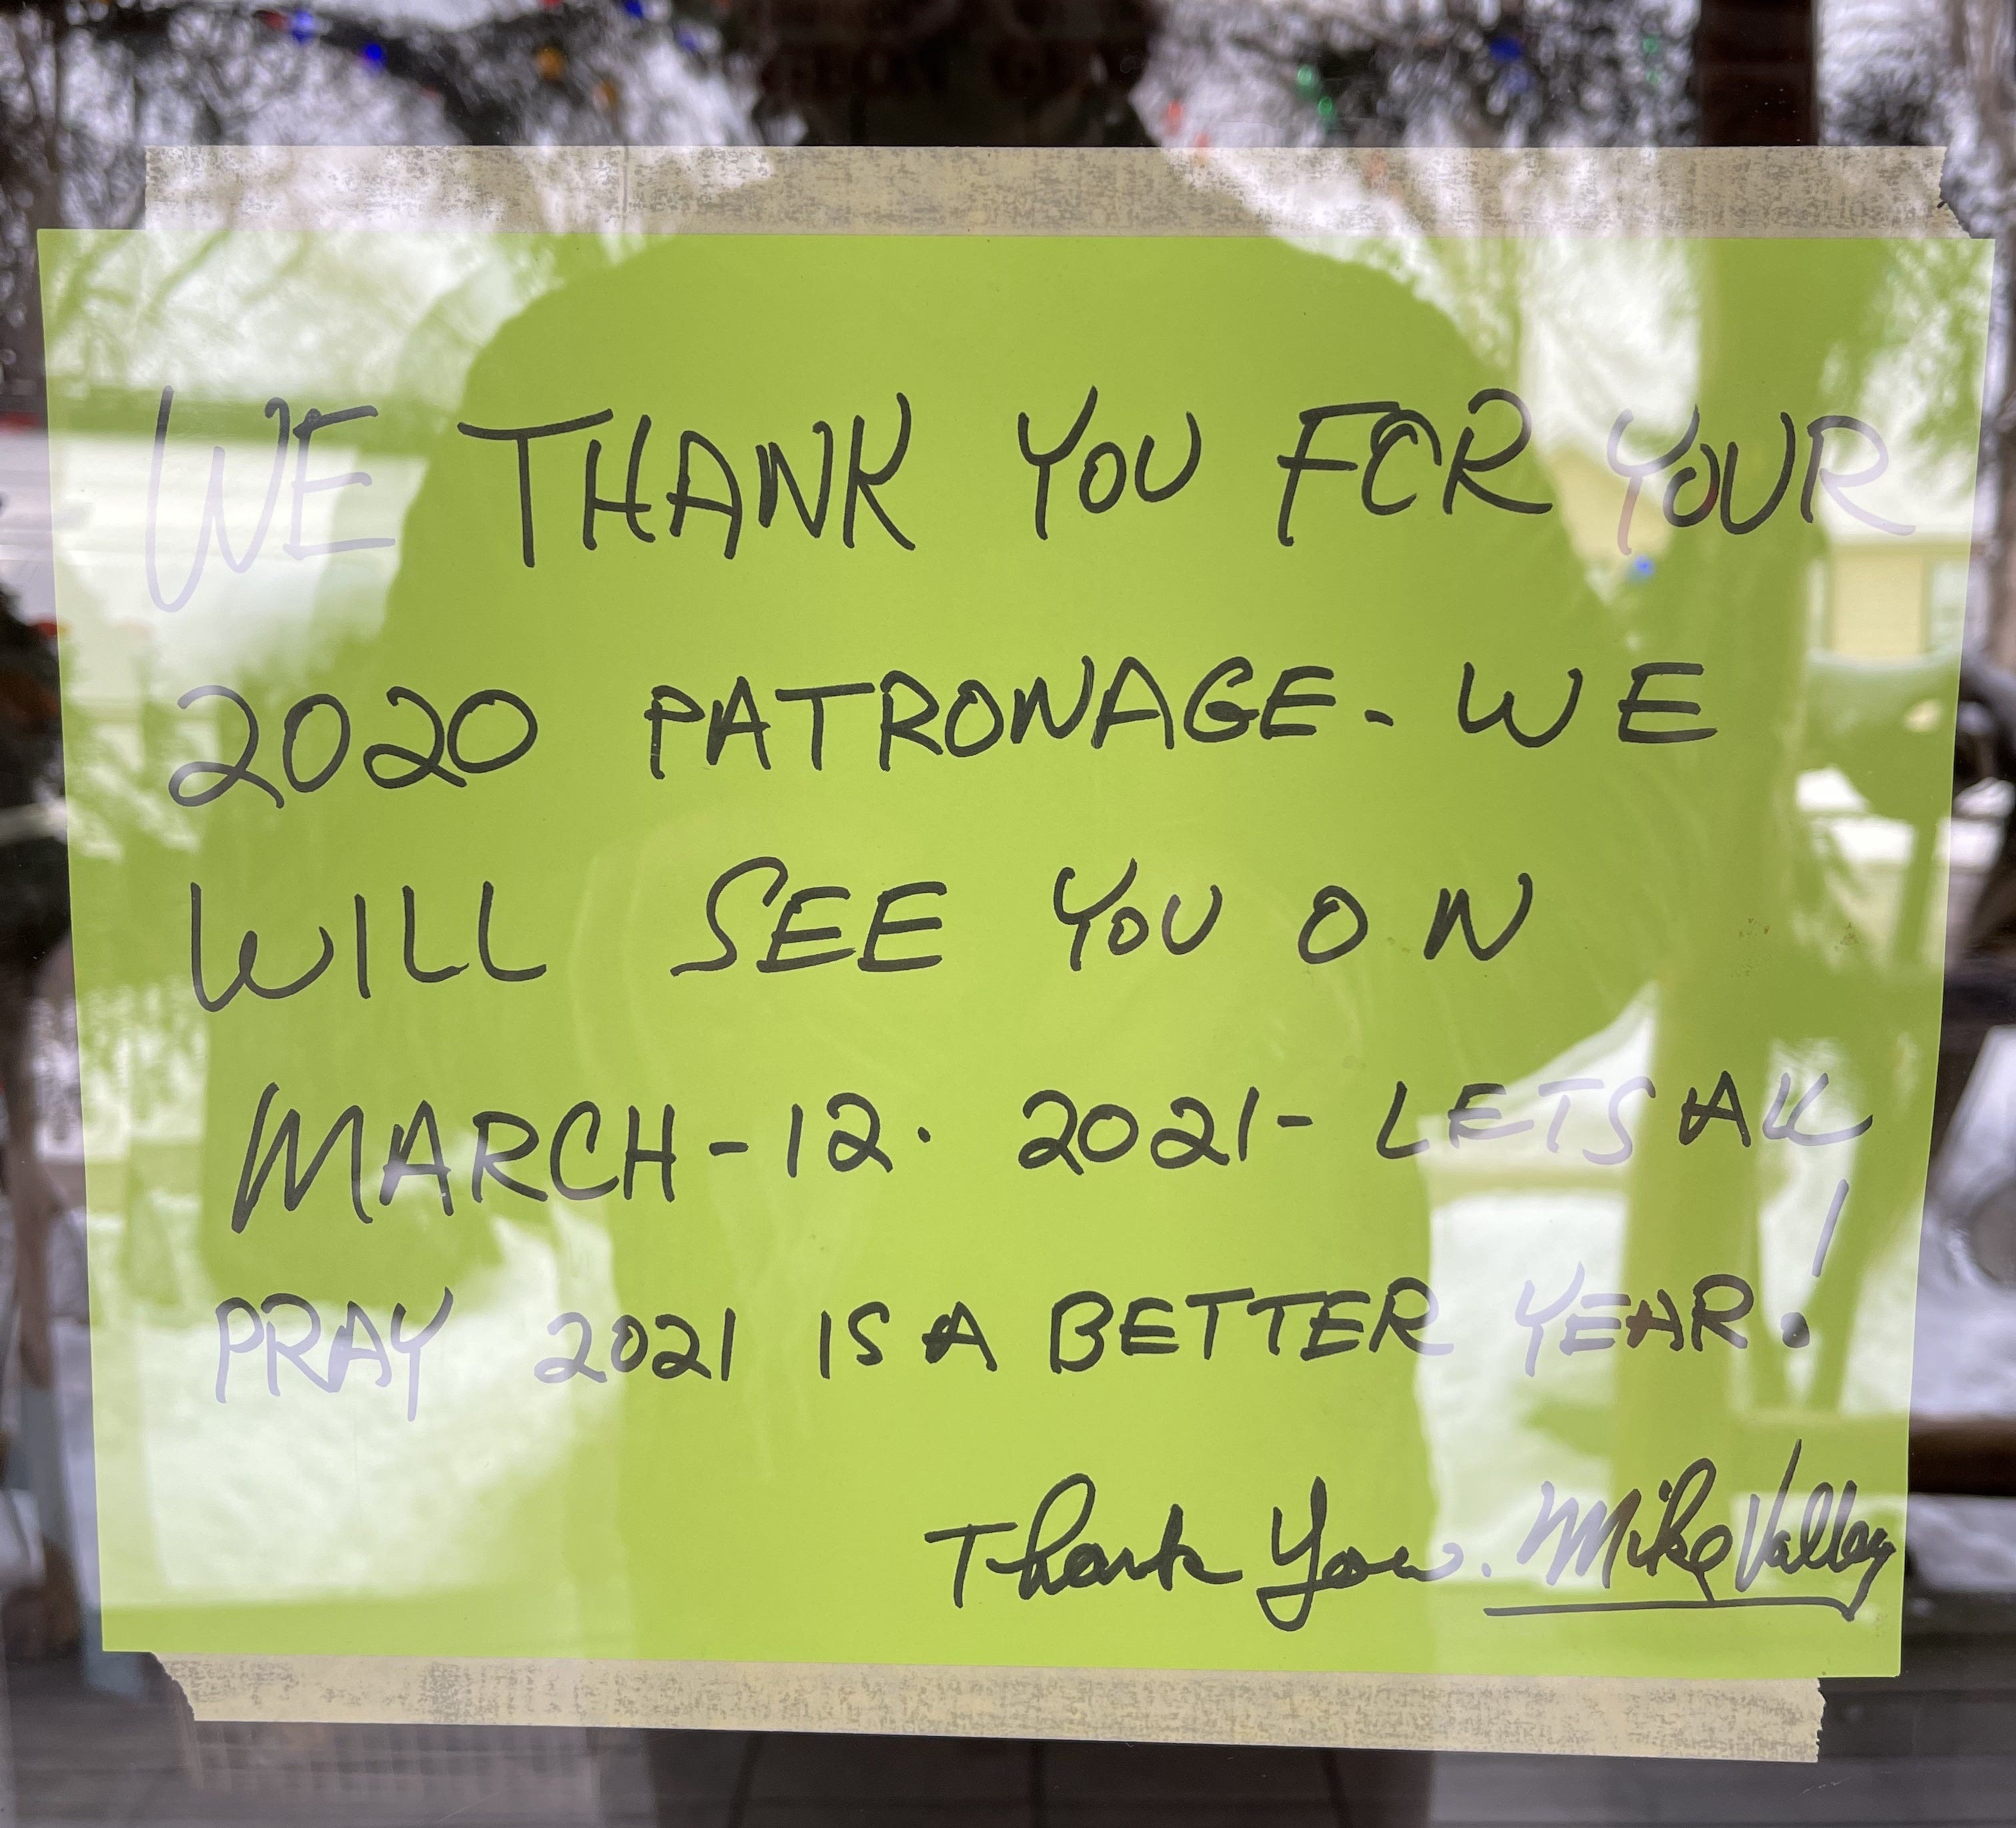 WE THANK YOU FOR YOUR
2020 PATRONAGE - WE
WILL SEE YOU ON
MARCH - 12. 2021 - LETS ALL
PRAY 2021 IS A BETTER YEAR!
Thank You. Mike Valley